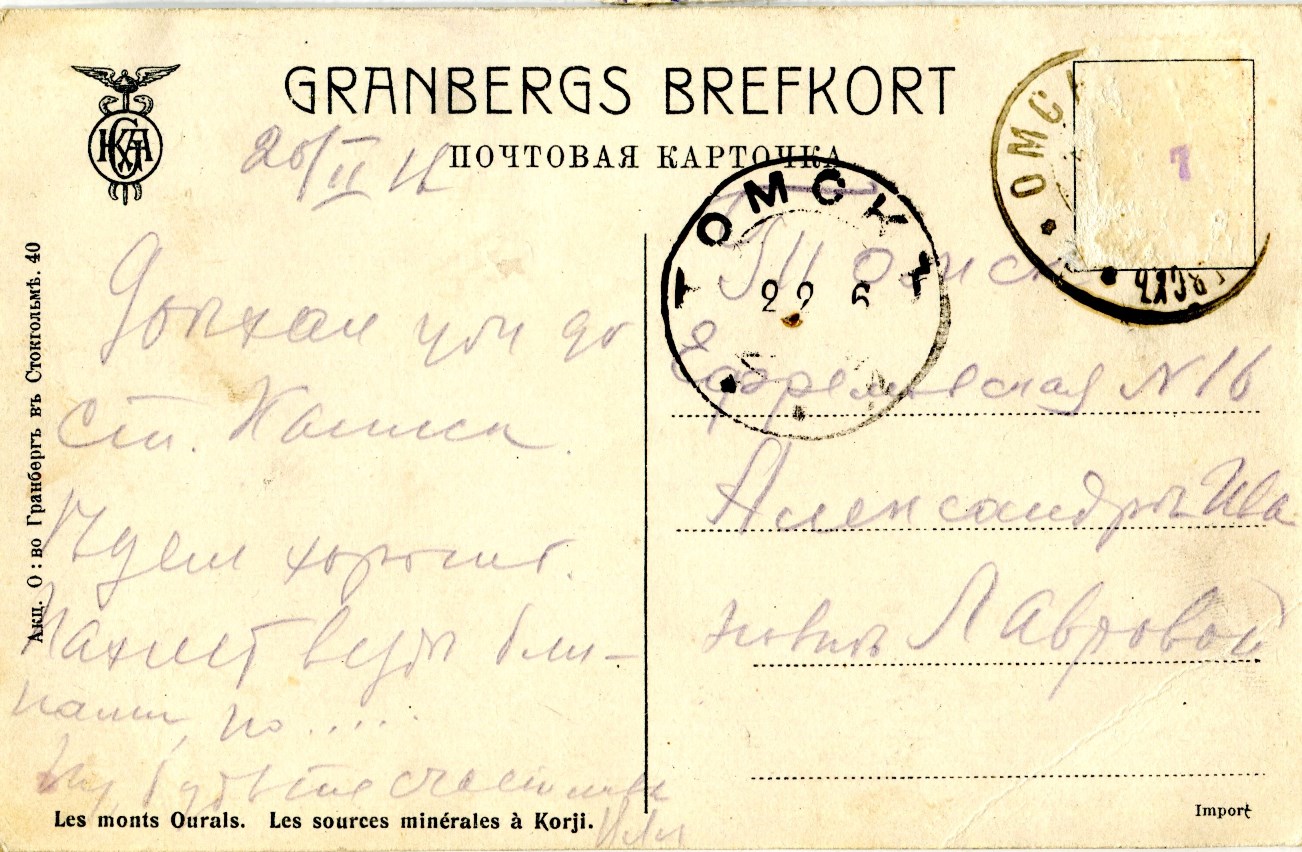 GRANBERGS BREFKORT
ПОЧТОВАЯ КАРТОЧКА
20/II
Акц. О:во Гранбергъ въ Стокгольмѣ. 40
до
ст. Каинск
Ѣдем хорошо.
Пахнет везде бли-
нами, но.....
Ну, будьте счастливы
ТОМСКЪ
22 6
ОМС
7
Томск
Ефремовская N 16
Александры Ива
новнѣ Лавровой
Les monts Ourals. Les sources minérales à Korji.
Import